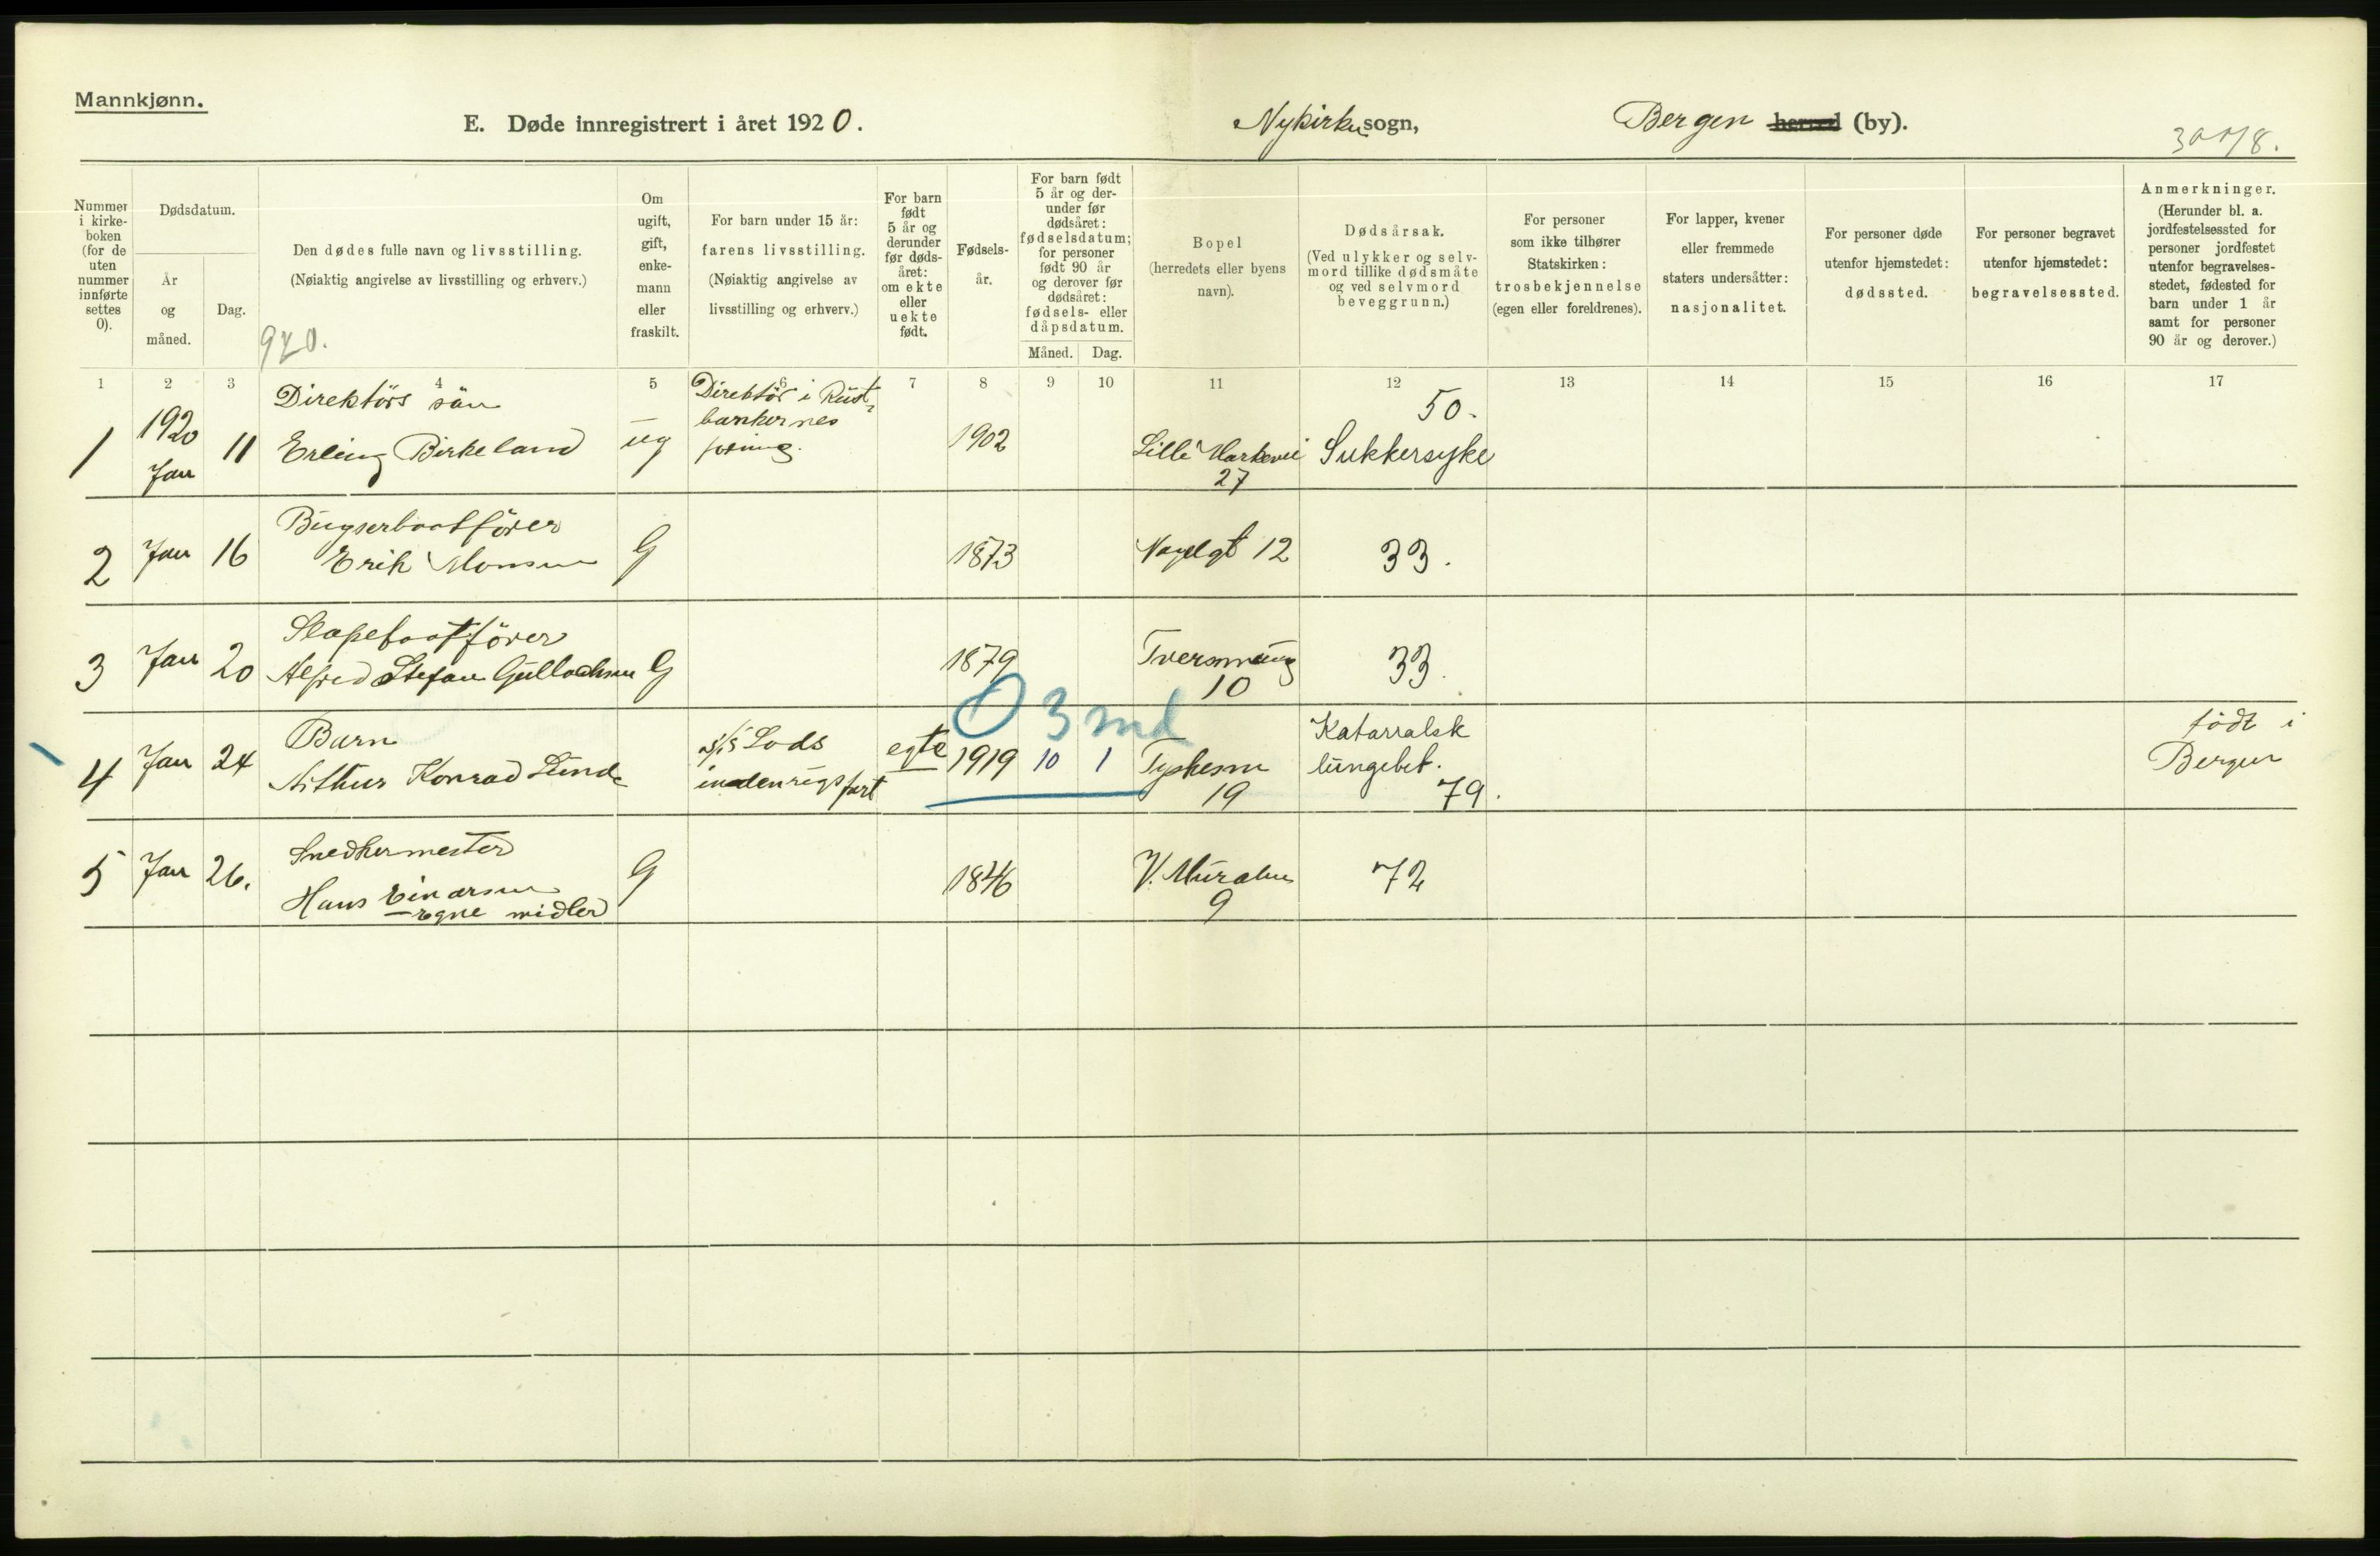 Mannkjønn.
E. Døde innregistrert i året 1920.
Nykirke sogn,
Bergen herred (by).
Nummer i kirke-boken (for de uten nummer innførte settes 0).
Dødsdatum.
År og måned.
Dag.
Den dødes fulle navn og livsstilling.
(Nøiaktig angivelse av livsstilling og erhverv.)
Om ugift, gift, enke-mann eller fraskilt.
For barn under 15 år:
farens livsstilling.
(Nøiaktig angivelse av livsstilling og erhverv.)
For barn født 5 år og derunder før døds-året: om ekte eller uekte født.
Fødsels-år.
For barn født 5 år og der-under før dødsåret: fødselsdatum; for personer født 90 år og derover før dødsåret: fødsels- eller dåpsdatum.
Måned.
Dag.
Bopel
(herredets eller byens navn).
Dødsårsak.
(Ved ulykker og selv-mord tillike dødsmåte og ved selvmord beveggrunn.)
For personer som ikke tilhører Statskirken: trosbekjennelse (egen eller foreldrenes).
For lapper, kvener eller fremmede staters undersåtter: nasjonalitet.
For personer døde utenfor hjemstedet: dødssted.
For personer begravet utenfor hjemstedet: begravelsessted.
Anmerkninger.
(Herunder bl. a. jordfestelsessted for personer jordfestet utenfor begravelses-stedet, fødested for barn under 1 år samt for personer 90 år og derover.)
920.
1 2 3 4 5 6 7 8 9 10 11 12 13 14 15 16 17
1
1920
Jan
11
Direktörs sön
Erling Birkeland
ug
Direktör i
bankernes
1902
Lille Markevei
27
50.
Sukkersyke
2
Jan
16
Bugserbaatförer
Erik Monsen
G
1873
Nagelgt 12
33.
3
Jan
20
Slæpebaatförer
Alfred Stefan Gullachsen
G
1879
Tversmaug
10
33.
0 3 md
4
Jan
24
Barn
Arthur Konrad Lunde
s/s Lods
indenrigsfart
egte
1919
10
1
Tyskesm
19
Katarralsk
lungebet.
79.
födt i
Bergen
5
Jan
26.
Snedkermester
Hans Einarsen
- egne midler
G
1846
V. Muralm
9
72